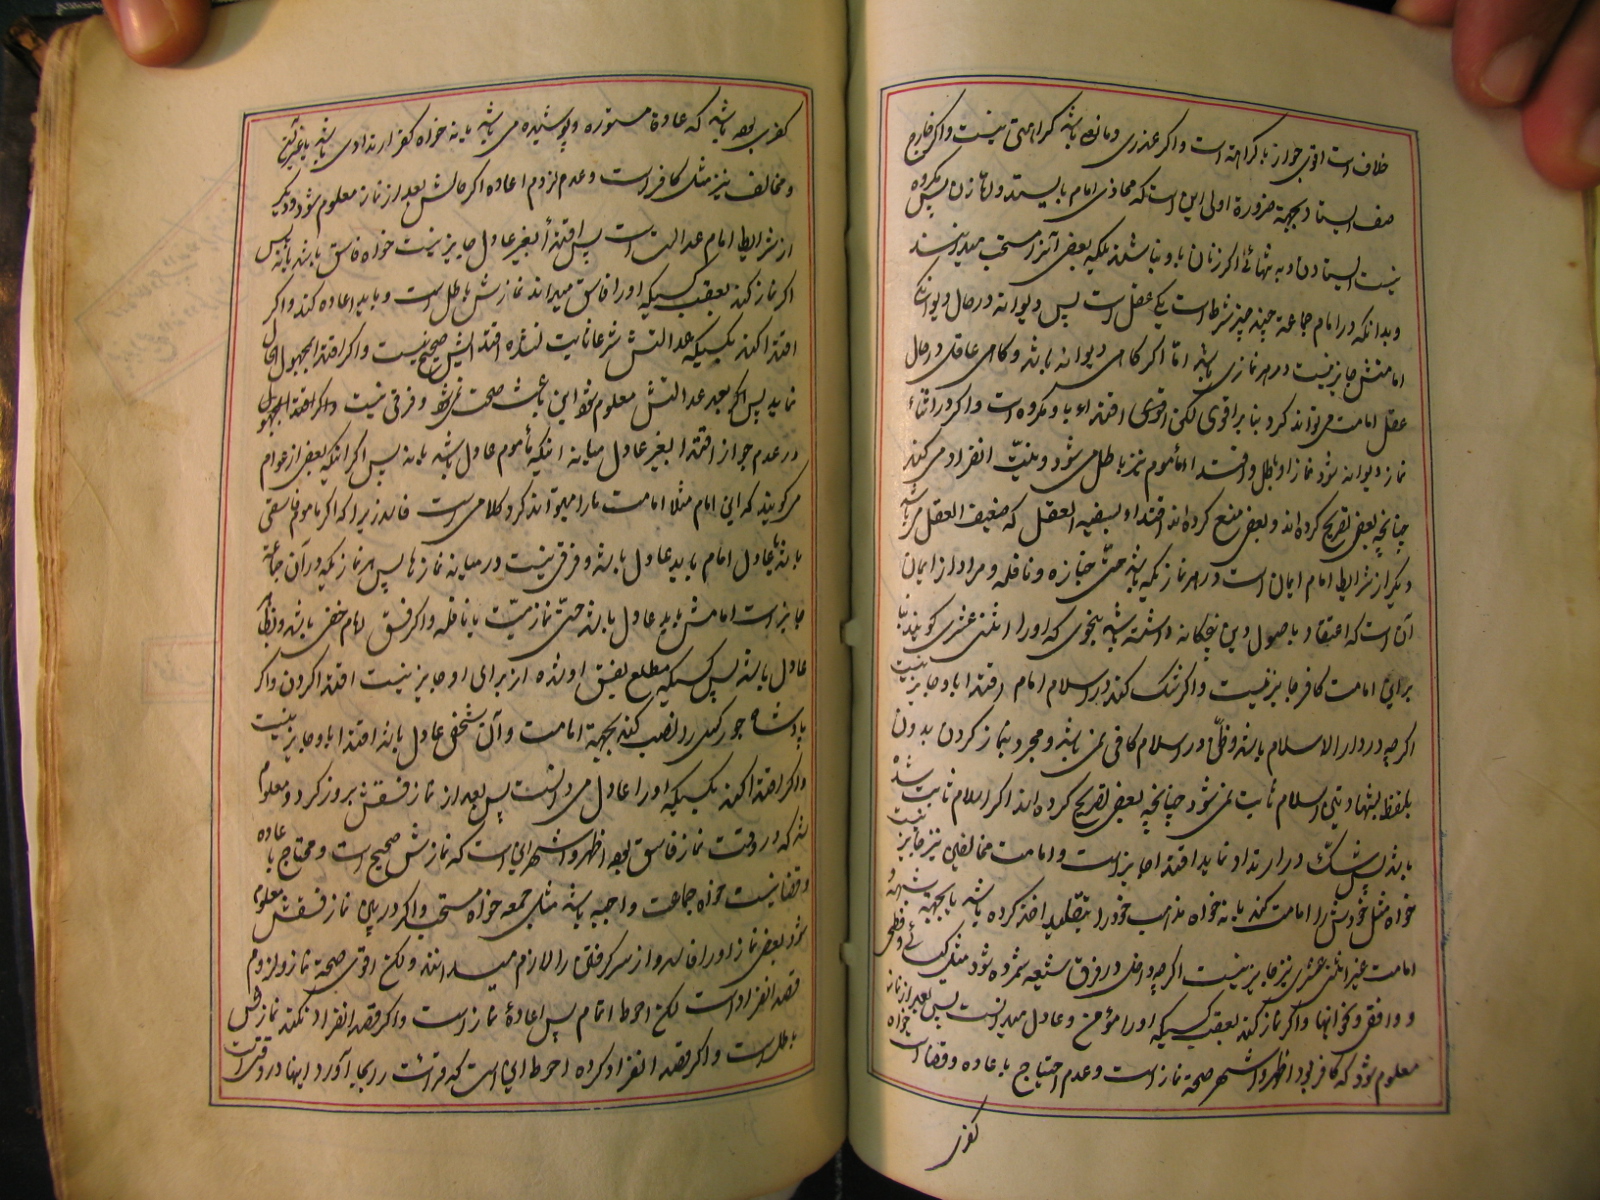 خلاف است اقوی جواز با کراهة است و اگر عذری و مانعی باشد کراهتی نیست و اگر خارج
صف ایستاد بجهة ضرورة اولی این است که محاذی امام بایستد و اما زن پس مکروه
نیست ایستادن او به تنهائی اگر زنان با او نباشند بلکه بعضی آنرا مستحب میدانند
و بدانکه در امام جماعة چند چیز شرط است یکی عقل است پس دیوانه در حال دیوانگی
امامتش جایز نیست در هر نمازی باشد اما اگر کاهی دیوانه باشد و کاهی عاقل در حال
عقل امامت می تواند کرد بنا بر اقوی لکن اقوی اقتداء باو مکروه است و اگر در اثناء
نماز دیوانه شود نماز او باطل و اقتداء مأموم نیز باطل می شود و نیت انفراد می کند
چنانچه بعضی تصریح کرده اند و بعضی منع کرده اند اقتداء بسفیه العقل که ضعیف العقل می باشد
دیگر از شرایط امام ایمان است در هر نماز که باشد حتی جنازه و نافله و مراد از ایمان
آن است که اعتقاد باصول دین پنجگانه داشته باشد بنحوی که او را اثنی عشری گویند بنا
براین امامت کافر جایز نیست و اگر شک کند در اسلام امام اقتداء باو جایز نیست
اگرچه در دار الاسلام باشد و ظن در اسلام کافی نمی باشد و مجرد نماز کردن بدون
تلفظ بشهادتین اسلام ثابت نمی شود چنانچه بعضی تصریح کرده اند اگر اسلام ثابت شده
باشد پس شک در ارتداد نماید اقتداء جایز است و امامت مخالفین نیز جایز نیست
خواه مثل خودش را امامت کند یا نه خواه مذهب خود را بتقلید اخذ کرده باشد یا بجهة شبهه و
امامت غیر اثنی عشری نیز جایز نیست اگرچه داخل در فرق شیعه شمرده شود مثل کیسانی و فطحی
و واقفی و نحو آنها و اگر نماز کند بعقب کسیکه او را مؤمن و عادل میدانست پس بعد از نماز
معلوم شود که کافر بود اظهر و اشهر صحة نماز است و عدم احتیاج باعاده و قضا است خواه
کفری
کفری بوده باشد که عادة مستوره و پوشیده می باشد یا نه خواه کفر ارتدادی باشد یا غیر آن
و مخالف نیز مثل کافر است و عدم لزوم اعاده اگر حالش بعد از نماز معلوم شود و دیگر
از شرایط امام عدالت است پس اقتداء بغیر عادل جایز نیست خواه فاسق باشد یا نه پس
اگر نماز کند بعقب کسیکه او را فاسق میداند نمازش باطل است و باید اعاده کند و اگر
اقتداء کند بکسیکه عدالتش شرعا ثابت نشده اقتدایش صحیح نیست و اگر اقتداء بمجهول الحال
نماید پس اگر بعد عدالتش معلوم شود این باعث صحت نمی شود و فرقی نیست
در عدم جواز اقتداء بغیر عادل میانه اینکه مأموم عادل باشد یا نه پس اگر اینکه بعضی از عوام
می گویند که این امام مثلا امامت ما را میتواند کرد کلامی است فاسد زیرا که اگر مأموم فاسقی
باشد یا عادل امام باید عادل باشد و فرقی نیست در میانه نمازها پس هر نماز که در آن جماعة
جایز است امامش باید عادل باشد حتی نماز میت یا نافله و اگر فسق امام خفی باشد و بظاهر
عادل باشد پس کسیکه مطلع بفسق او شده از برای او جایز نیست اقتداء کردن و اگر
پادشاه جور کسی را نصب کند بجهة امامت و آن شخص عادل باشد اقتداء باو جایز نیست
و اگر اقتداء کند بکسیکه او را عادل می دانست پس بعد از نماز فسقش بروز کرد و معلوم
شد که در وقت نماز فاسق بوده اظهر و اشهر این است که نمازش صحیح است و محتاج باعاده
و قضا نیست خواه جماعت واجبه باشد مثل جمعه خواه مستحب و اگر در بین نماز فسقش معلوم
شود بعضی نماز او را فاسد و از سر گرفتن را لازم میدانند و لکن اقوی صحة نماز و لزوم
قصد انفراد است لکن احوط اتمام پس اعادۀ نماز است و اگر قصد انفراد نکند نمازش
باطل است و اگر قصد انفراد کرده احوط این است که قرائت را بجا آورد اینها در وقتی است